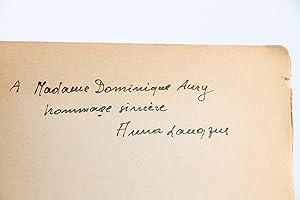 A Madame Dominique Aury
hommage sincère
Anna Langfus